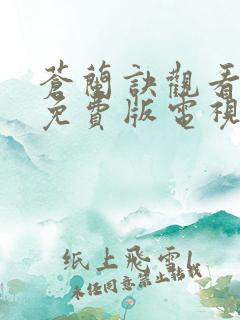 蒼蘭訣觀看
免費版電視
纸上飛雪l
未经同意禁止转载